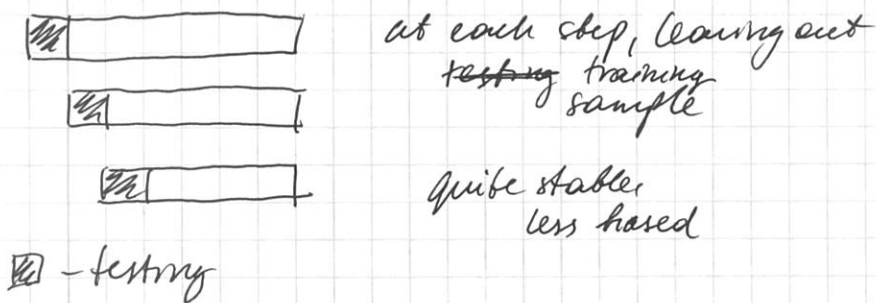 at each step, leaving out
~~testing~~ training
sample
quite stable,
less biased
- testing